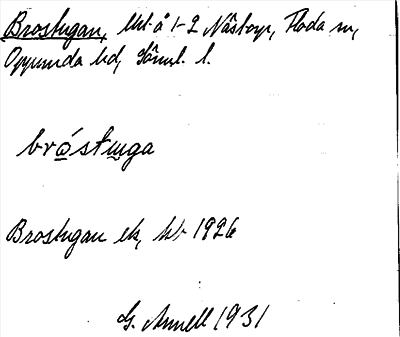 Brostugan, lht å 1-2 Nästorp, Floda sn,
Oppunda hd, Söml. l.
bro̲´stu̲ga
Brostugan ek, kb 1926
G. Annell 1931